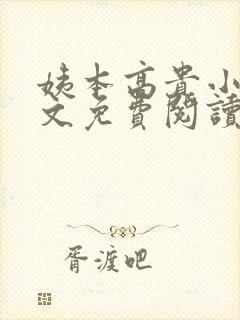 姨本高贵小
文免費閱讀
胥渡吧